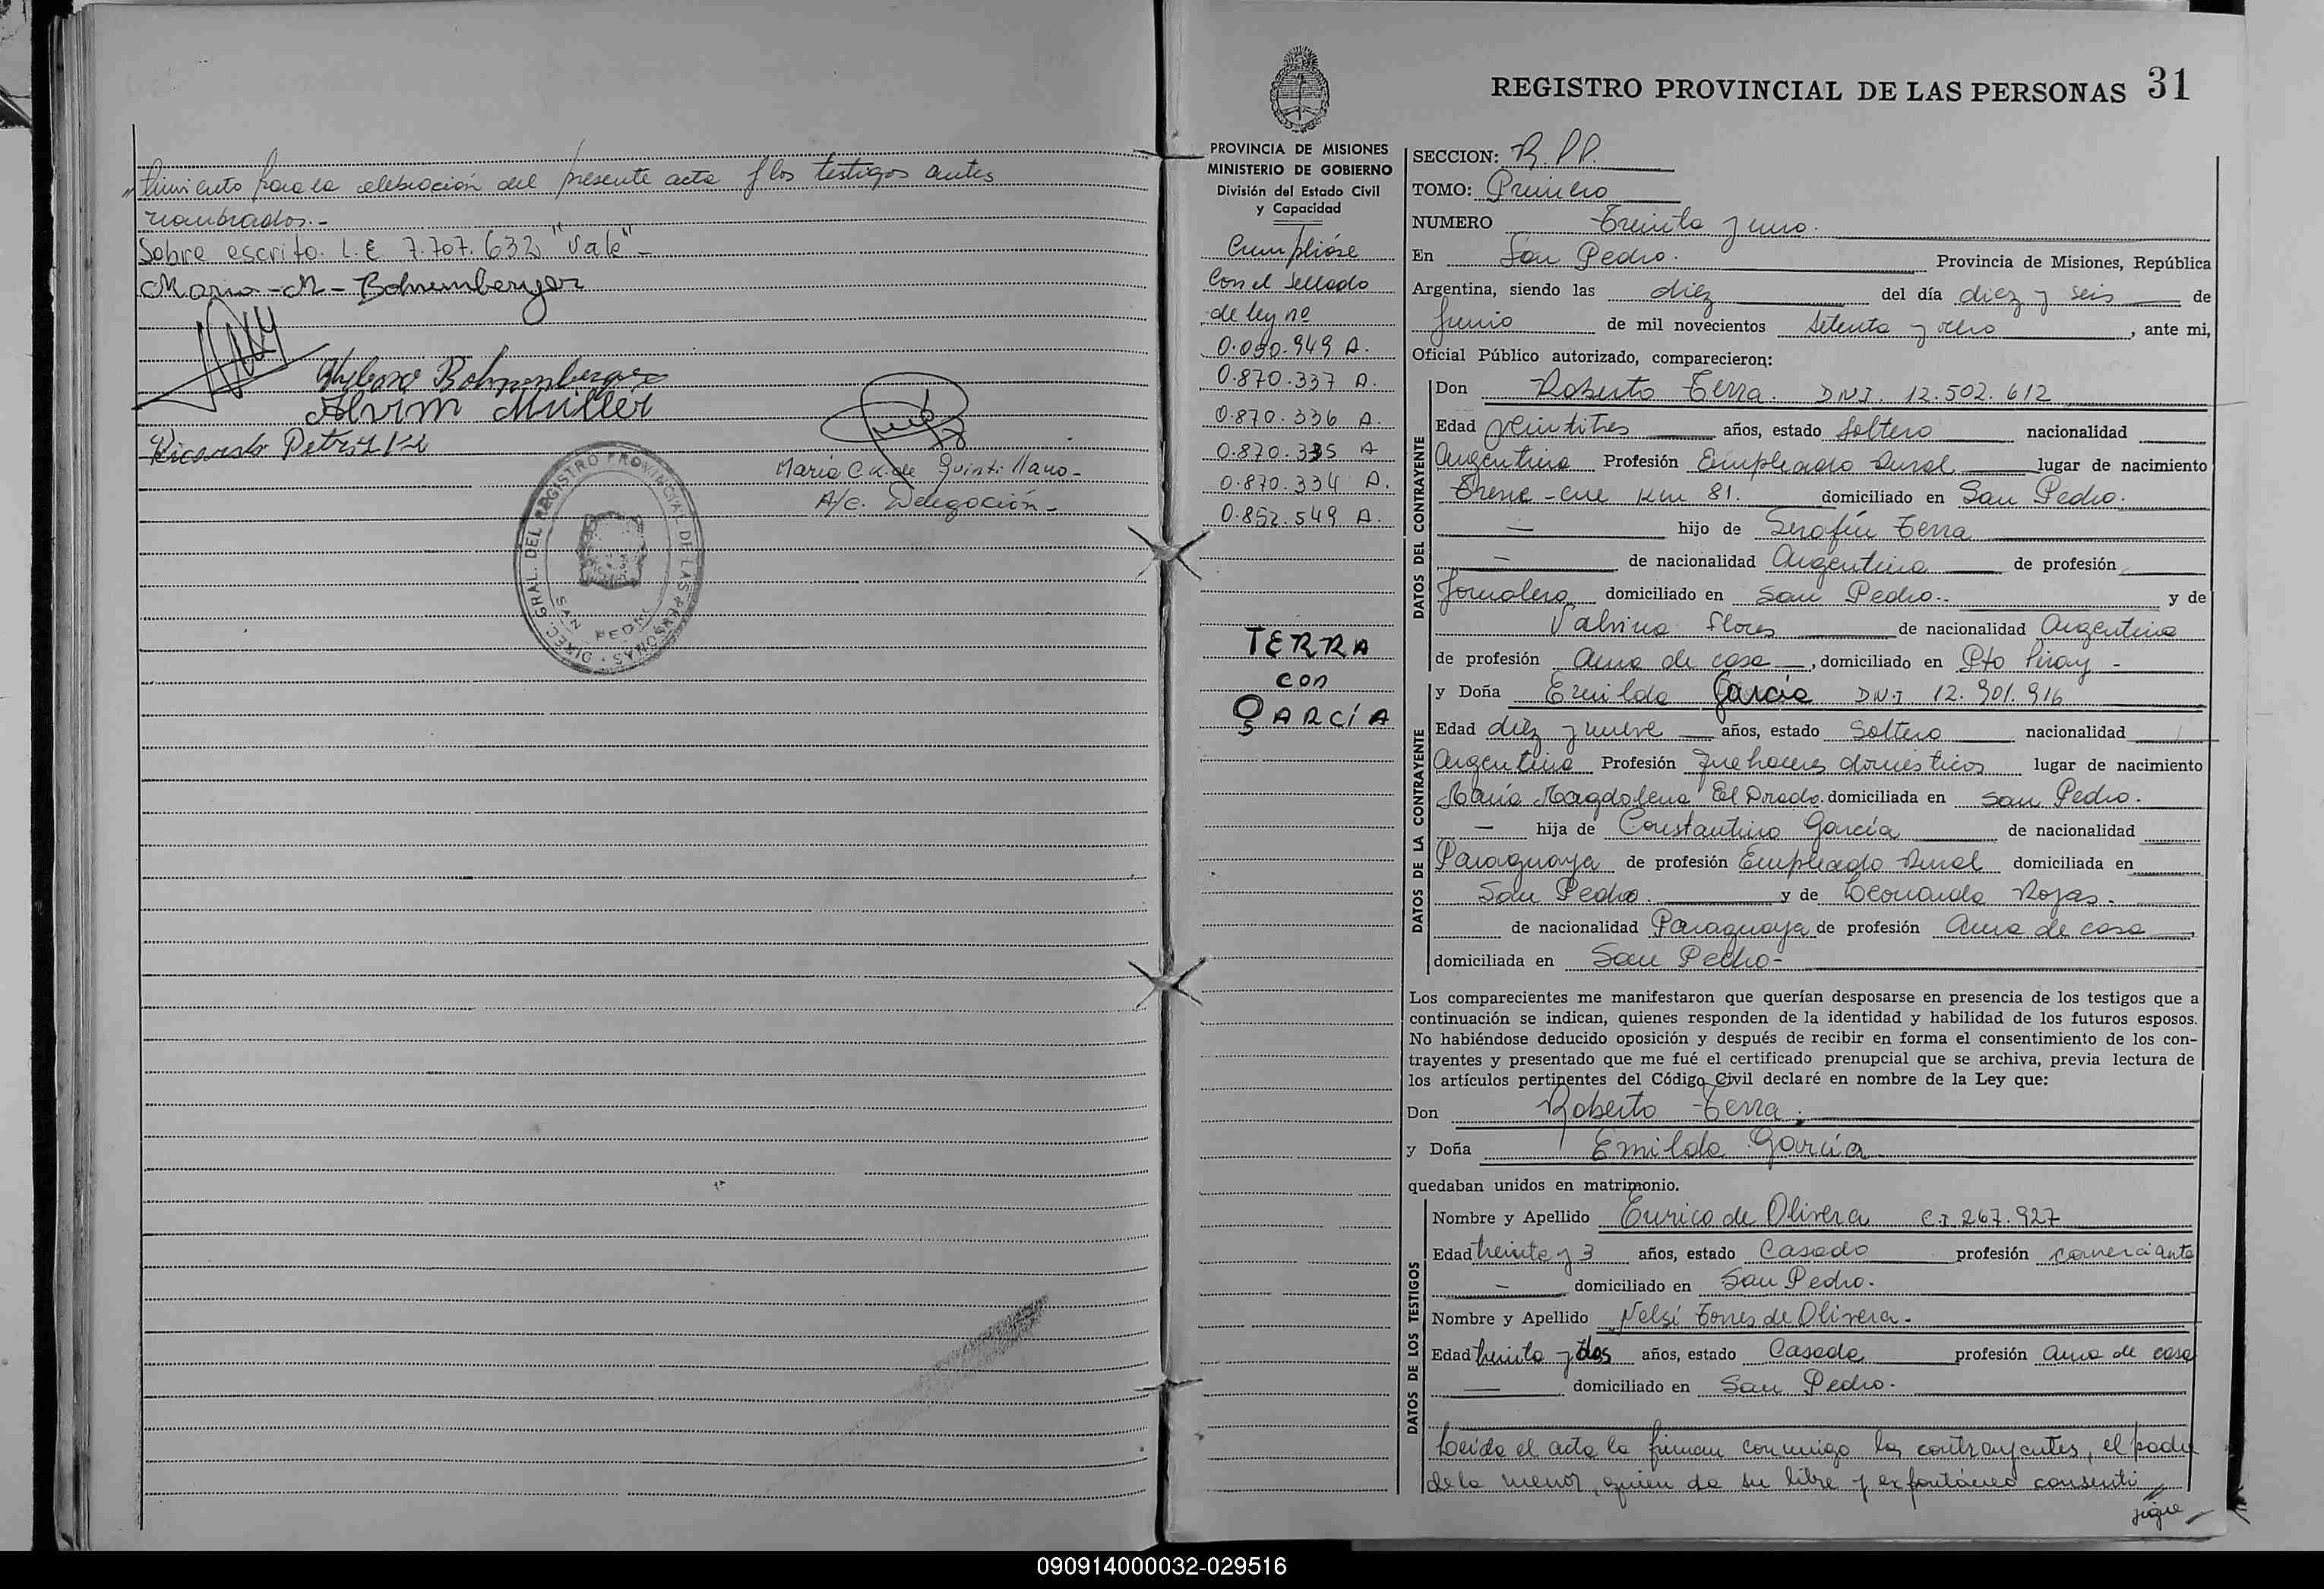 "timiento para la celebración del presente acta y los testigos antes
nombrados.-
Sobre escrito. L.E 7.707.632 "Vale"-
Maria-M-Bohnemberger
Bohnenberger
Alvim Müller
Ricardo
Maria C.K. de Quintillano-
A/C. Delegación-
DIREC. GRAL. DEL REGISTRO PROVINCIAL DE LAS PERSONAS
SAN PEDRO
REGISTRO PROVINCIAL DE LAS PERSONAS 31
PROVINCIA DE MISIONES
MINISTERIO DE GOBIERNO
División del Estado Civil
y Capacidad
Cumplióse
Con el Sellado
de ley nº
0.090.949 A.
0.870.337 A.
0.870.336 A.
0.870.335 A
0.870.334 A.
0.852.549 A.
TERRA
con
GARCÍA
SECCION: R.PP.
TOMO: Primero
NUMERO Treinta y uno.
En San Pedro. Provincia de Misiones, República
Argentina, siendo las diez del día diez y seis de
Junio de mil novecientos setenta y ocho, ante mi,
Oficial Público autorizado, comparecieron:
DATOS DEL CONTRAYENTE
Don Roberto Terra. DNI. 12.502.612
Edad veintitres años, estado Soltero nacionalidad
Argentina Profesión Empleado Rural lugar de nacimiento
Km 81. domiciliado en San Pedro.
— hijo de Serafín Terra
— de nacionalidad Argentina de profesión
Jornalero domiciliado en San Pedro.. y de
Valvina Flores de nacionalidad Argentina
de profesión Ama de casa, domiciliado en Pto Piray -
DATOS DE LA CONTRAYENTE
y Doña Emilda García DNI 12.901.916
Edad diez y nueve años, estado Soltera nacionalidad
Argentina Profesión Quehaceres domésticos lugar de nacimiento
María Magdalena El Dorado. domiciliada en San Pedro.
— hija de Constantino García de nacionalidad
Paraguaya de profesión Empleado Rural domiciliada en
San Pedro. y de Leonarda Rojas.
de nacionalidad Paraguaya de profesión Ama de casa
domiciliada en San Pedro-
Los comparecientes me manifestaron que querían desposarse en presencia de los testigos que a
continuación se indican, quienes responden de la identidad y habilidad de los futuros esposos.
No habiéndose deducido oposición y después de recibir en forma el consentimiento de los con-
trayentes y presentado que me fué el certificado prenupcial que se archiva, previa lectura de
los artículos pertinentes del Código Civil declaré en nombre de la Ley que:
Don Roberto Terra.
y Doña Emilda García
quedaban unidos en matrimonio.
DATOS DE LOS TESTIGOS
Nombre y Apellido Eurico de Olivera C.I 267.927
Edad treinta y 3 años, estado Casado profesión comerciante
— domiciliado en San Pedro.
Nombre y Apellido Nelsi Torres de Olivera.
Edad treinta y dos años, estado Casada profesión Ama de casa
— domiciliado en San Pedro.
Leida el acta la firman conmigo los contrayentes, el padre
de la menor, quien da su libre y expontáneo consenti
sigue
090914000032-029516